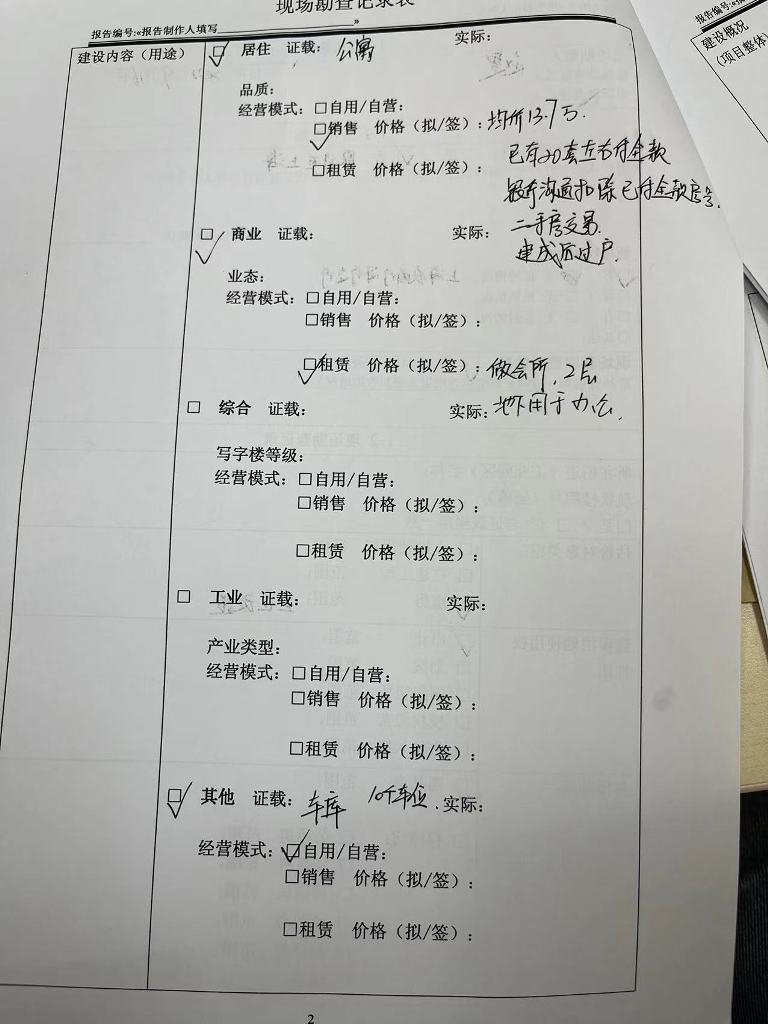 现场勘查记录表
报告编号:«报告制作人填写»
建设内容（用途）
□ 居住 证载: 公寓 实际:
品质:
经营模式: □自用/自营:
□销售 价格（拟/签）: 均价13.7万.
已有20套左右付全款
□租赁 价格（拟/签）:
银行沟通扣除已付全款房号.
二手房交易.
建成后过户.
□ 商业 证载: 实际:
业态:
经营模式: □自用/自营:
□销售 价格（拟/签）:
□租赁 价格（拟/签）: 做会所, 2层
地下用于办公.
□ 综合 证载: 实际:
写字楼等级:
经营模式: □自用/自营:
□销售 价格（拟/签）:
□租赁 价格（拟/签）:
□ 工业 证载: 实际:
产业类型:
经营模式: □自用/自营:
□销售 价格（拟/签）:
□租赁 价格（拟/签）:
□ 其他 证载: 车库 10个车位. 实际:
经营模式: □自用/自营:
□销售 价格（拟/签）:
□租赁 价格（拟/签）:
2
报告编号:«报
建设概况
（项目整体）